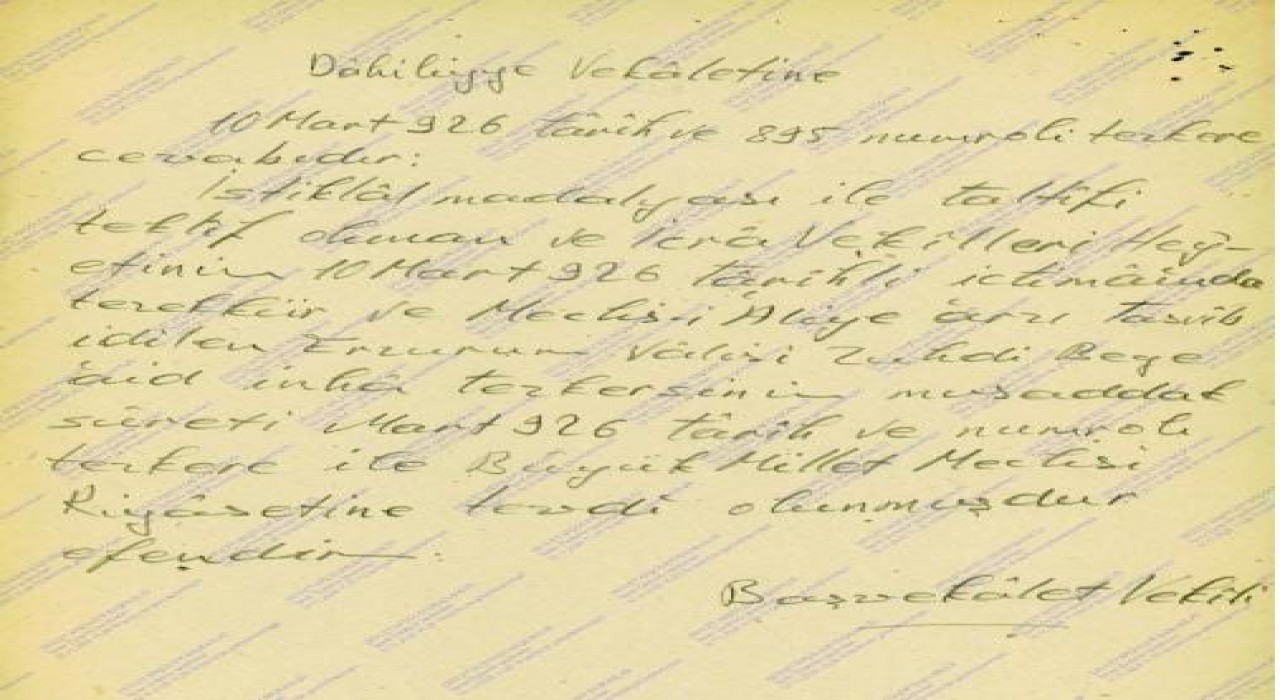 Dâhiliyye Vekâletine
10 Mart 926 târîh ve 895 numrolı tezkere
cevabıdır:
İstiklâl madalyası ile taltîfi
teklîf olunan ve İcrâ Vekîlleri Hey-
etinin 10 Mart 926 târîhli ictimâında
tezekkür ve Meclis-i Âlîye arzı tasvîb
idilen Erzurum Vâlisi Zuhdi Beye
âid inhâ tezkersinin musaddak
sûreti Mart 926 târîh ve numrolı
tezkere ile Büyük Millet Meclisi
Riyâsetine tevdî olunmuşdur
efendim.
Başvekâlet Vekîli